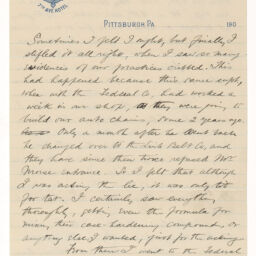 7TH AVE. HOTEL
PITTSBURGH PA. 190
Sometimes I felt I ought, but finally I
stifled it all right, when I saw so many
evidences of our practices cribbed. This
had happened because this same
when with the Federal Co, had worked a
week in our shop, as they were going to
build our auto chains, some 2 years ago.
Only a month after he went back
he changed over to the Link Belt Co. and
they have since then twice refused Mr.
Morse entrance. So I felt that although
I was acting the lie, it was only tit
for tat. I certainly saw everything
thoroughly, getting even the formula for
their case-hardening compound, or
anything else I wanted, just for the asking.
From there I went to the Federal